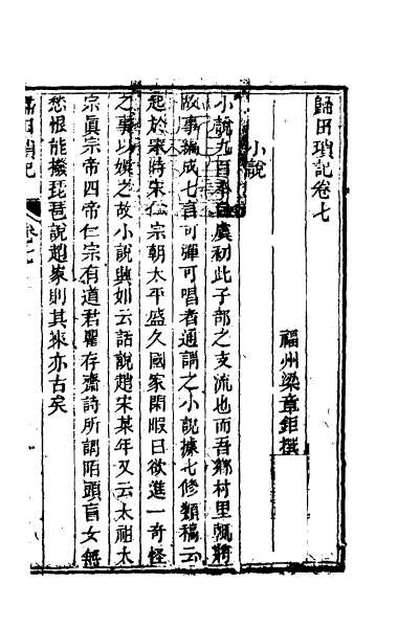 歸田瑣記卷七
福州梁章鉅撰
小說
小說九百本自虞初此子部之支流也而吾鄉村里輒將
故事編成七言可彈可唱者通謂之小說據七修類稿云
起於宋時宋仁宗朝太平盛久國家閒暇日欲進一奇怪
之事以娛之故小說興如云話說趙宋某年又云太祖太
宗眞宗帝四帝仁宗有道君瞿存齋詩所謂陌頭盲女無
愁恨能撥琵琶說趙家則其來亦古矣
歸田瑣記
卷七